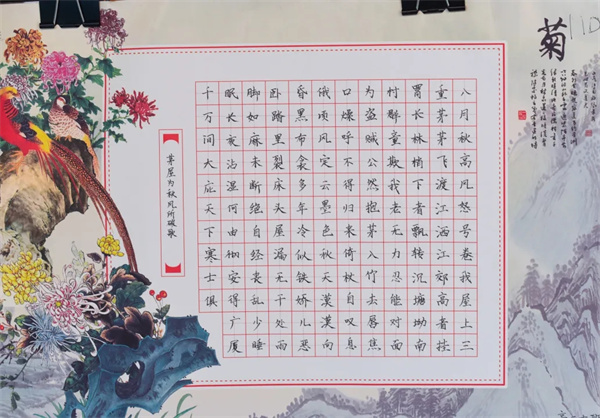 菊
110
八月秋高风怒号卷我屋上三
重茅茅飞渡江洒江郊高者挂
罥长林梢下者飘转沉塘坳南
村群童欺我老无力忍能对面
为盗贼公然抱茅入竹去唇焦
口燥呼不得归来倚杖自叹息
俄顷风定云墨色秋天漠漠向
昏黑布衾多年冷似铁娇儿恶
卧踏里裂床头屋漏无干处雨
脚如麻未断绝自经丧乱少睡
眠长夜沾湿何由彻安得广厦
千万间大庇天下寒士俱
【茅屋为秋风所破歌】